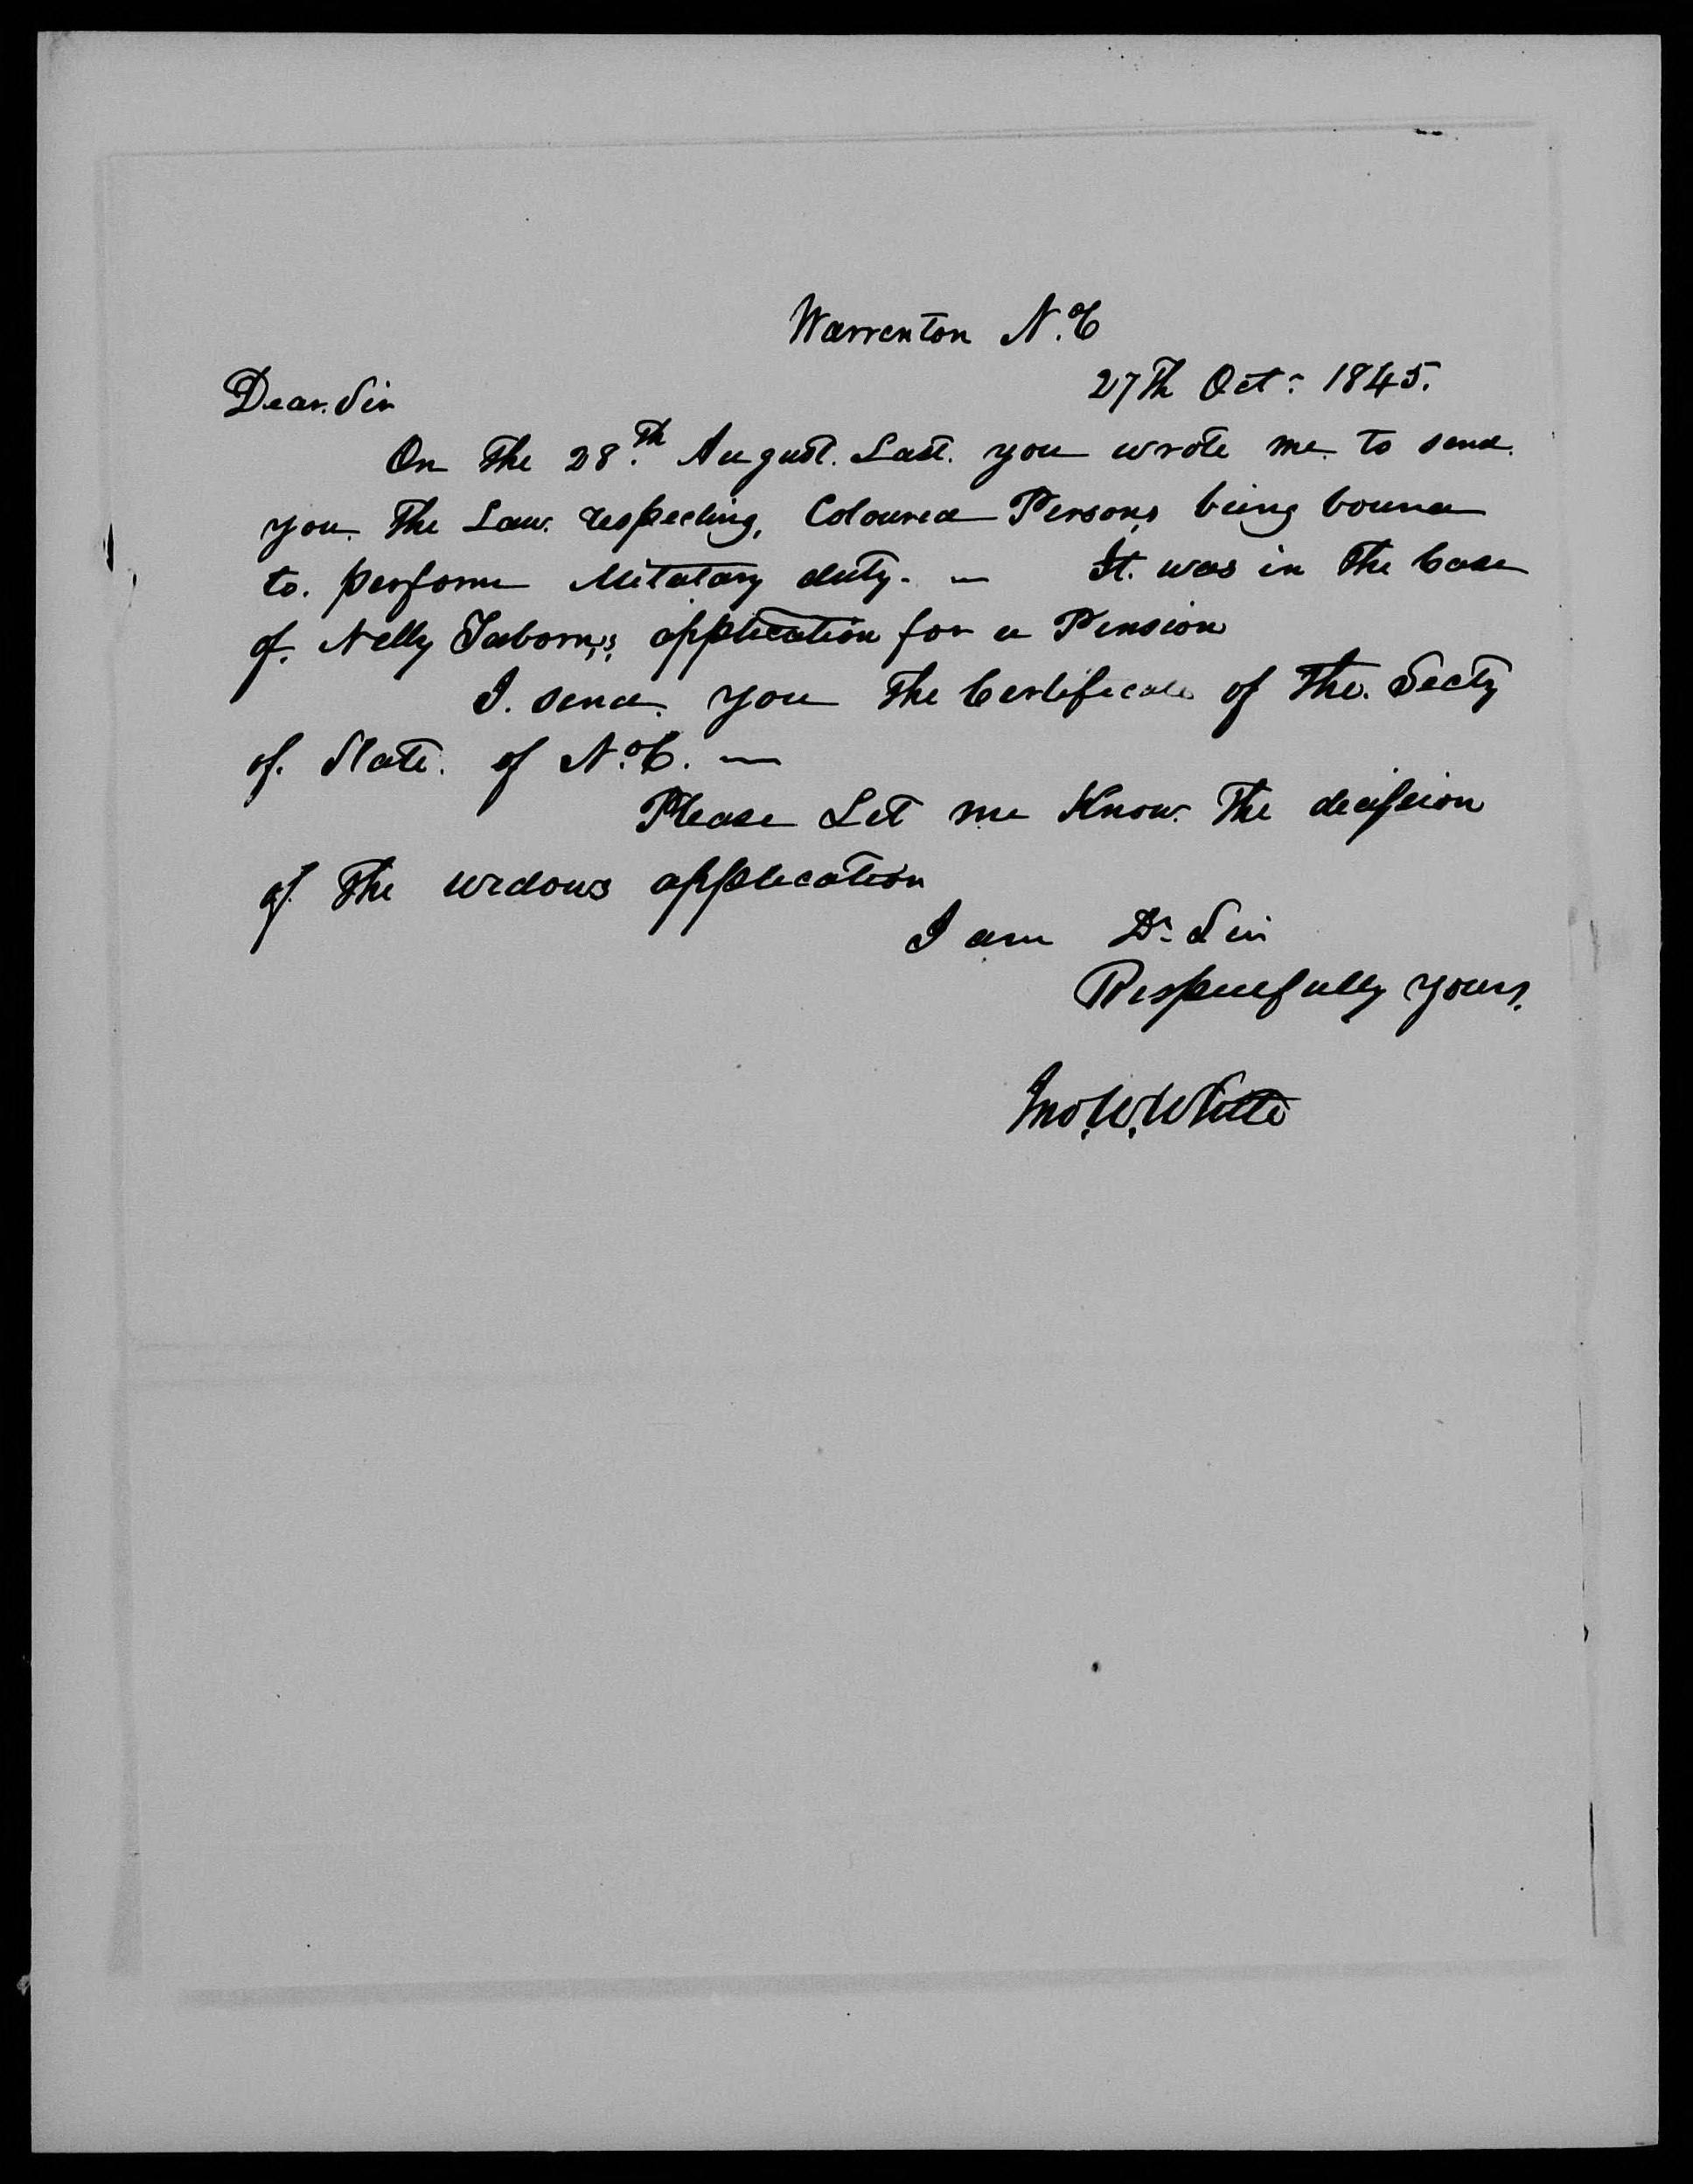 Warrenton N.C
27th Oct: 1845.
Dear. Sir
On the 28.th August. Last. you wrote me to send.
you. the Law. respecting, Coloured Persons being bound
to. perform Militatary duty. — It. was in the Case
of. Nelly Taborn,s, application for a Pension
I. send. you the Certificate of the. Secty
of. State. of N.C. —
Please Let me Know. the decission
of. the widows application
I am Dr. Sir
Respecfully yours,
Jno. W. White